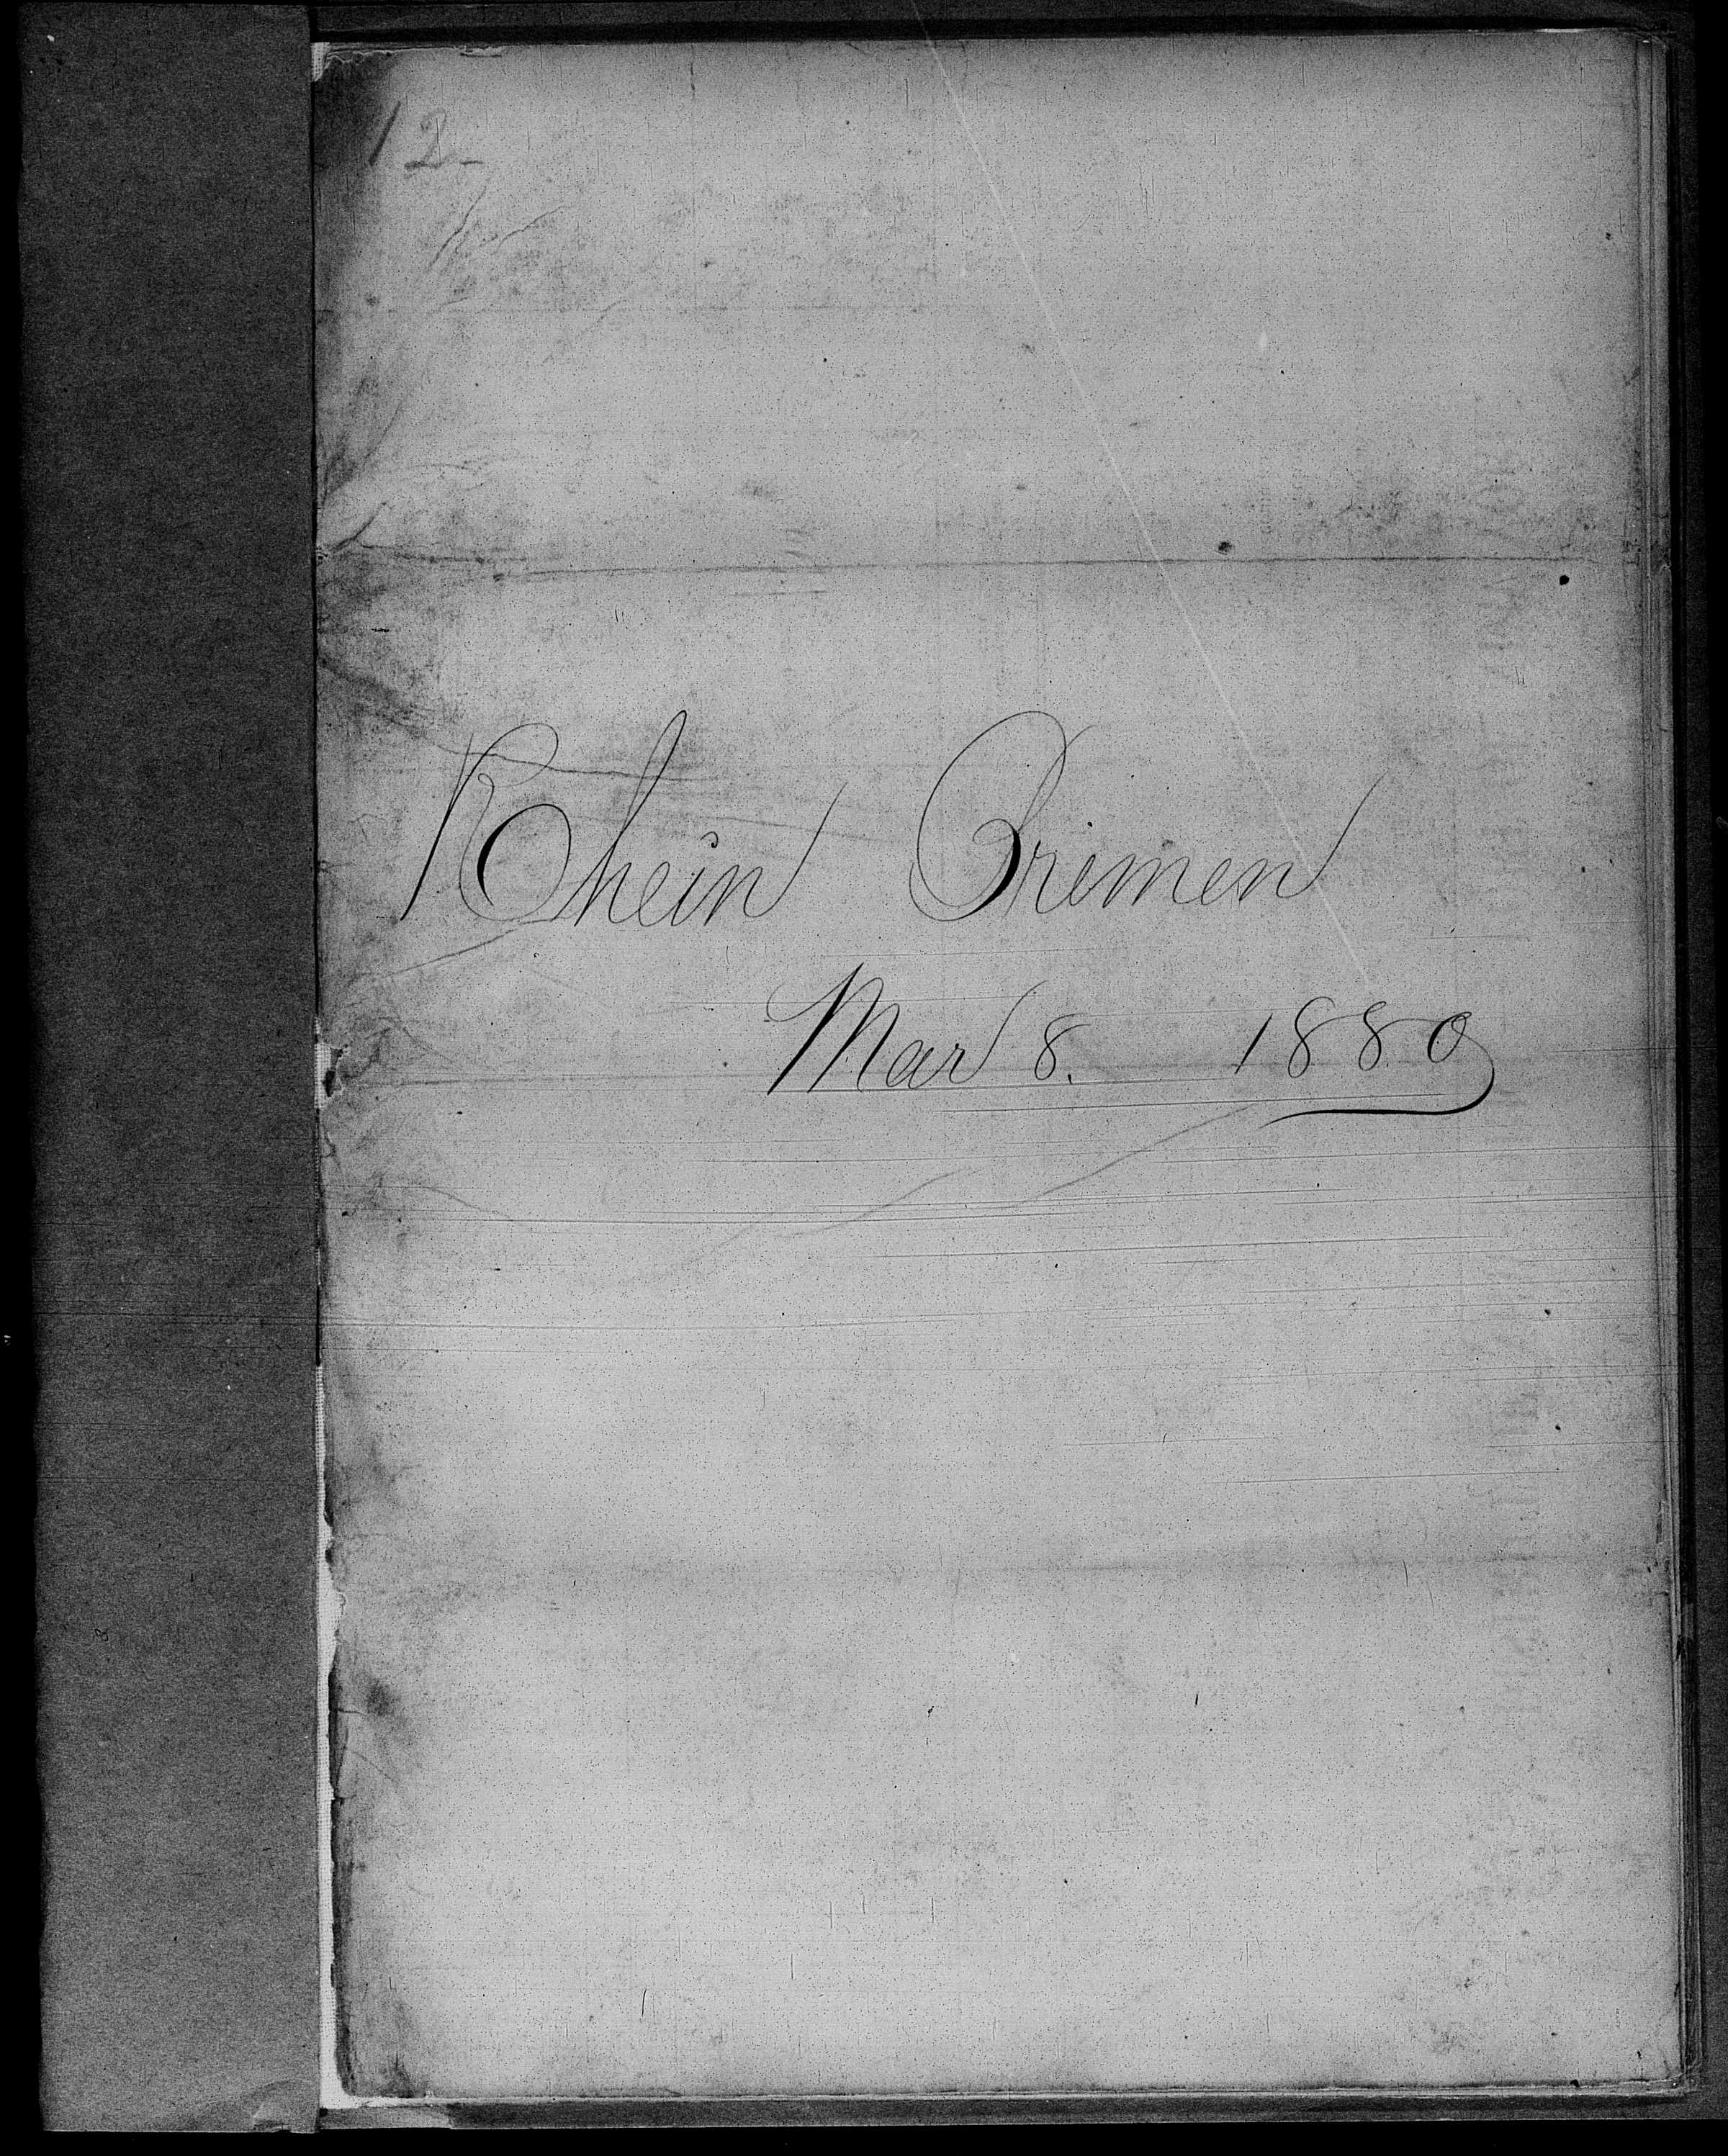 12
Rhein Bremen
Mar 8. 1880